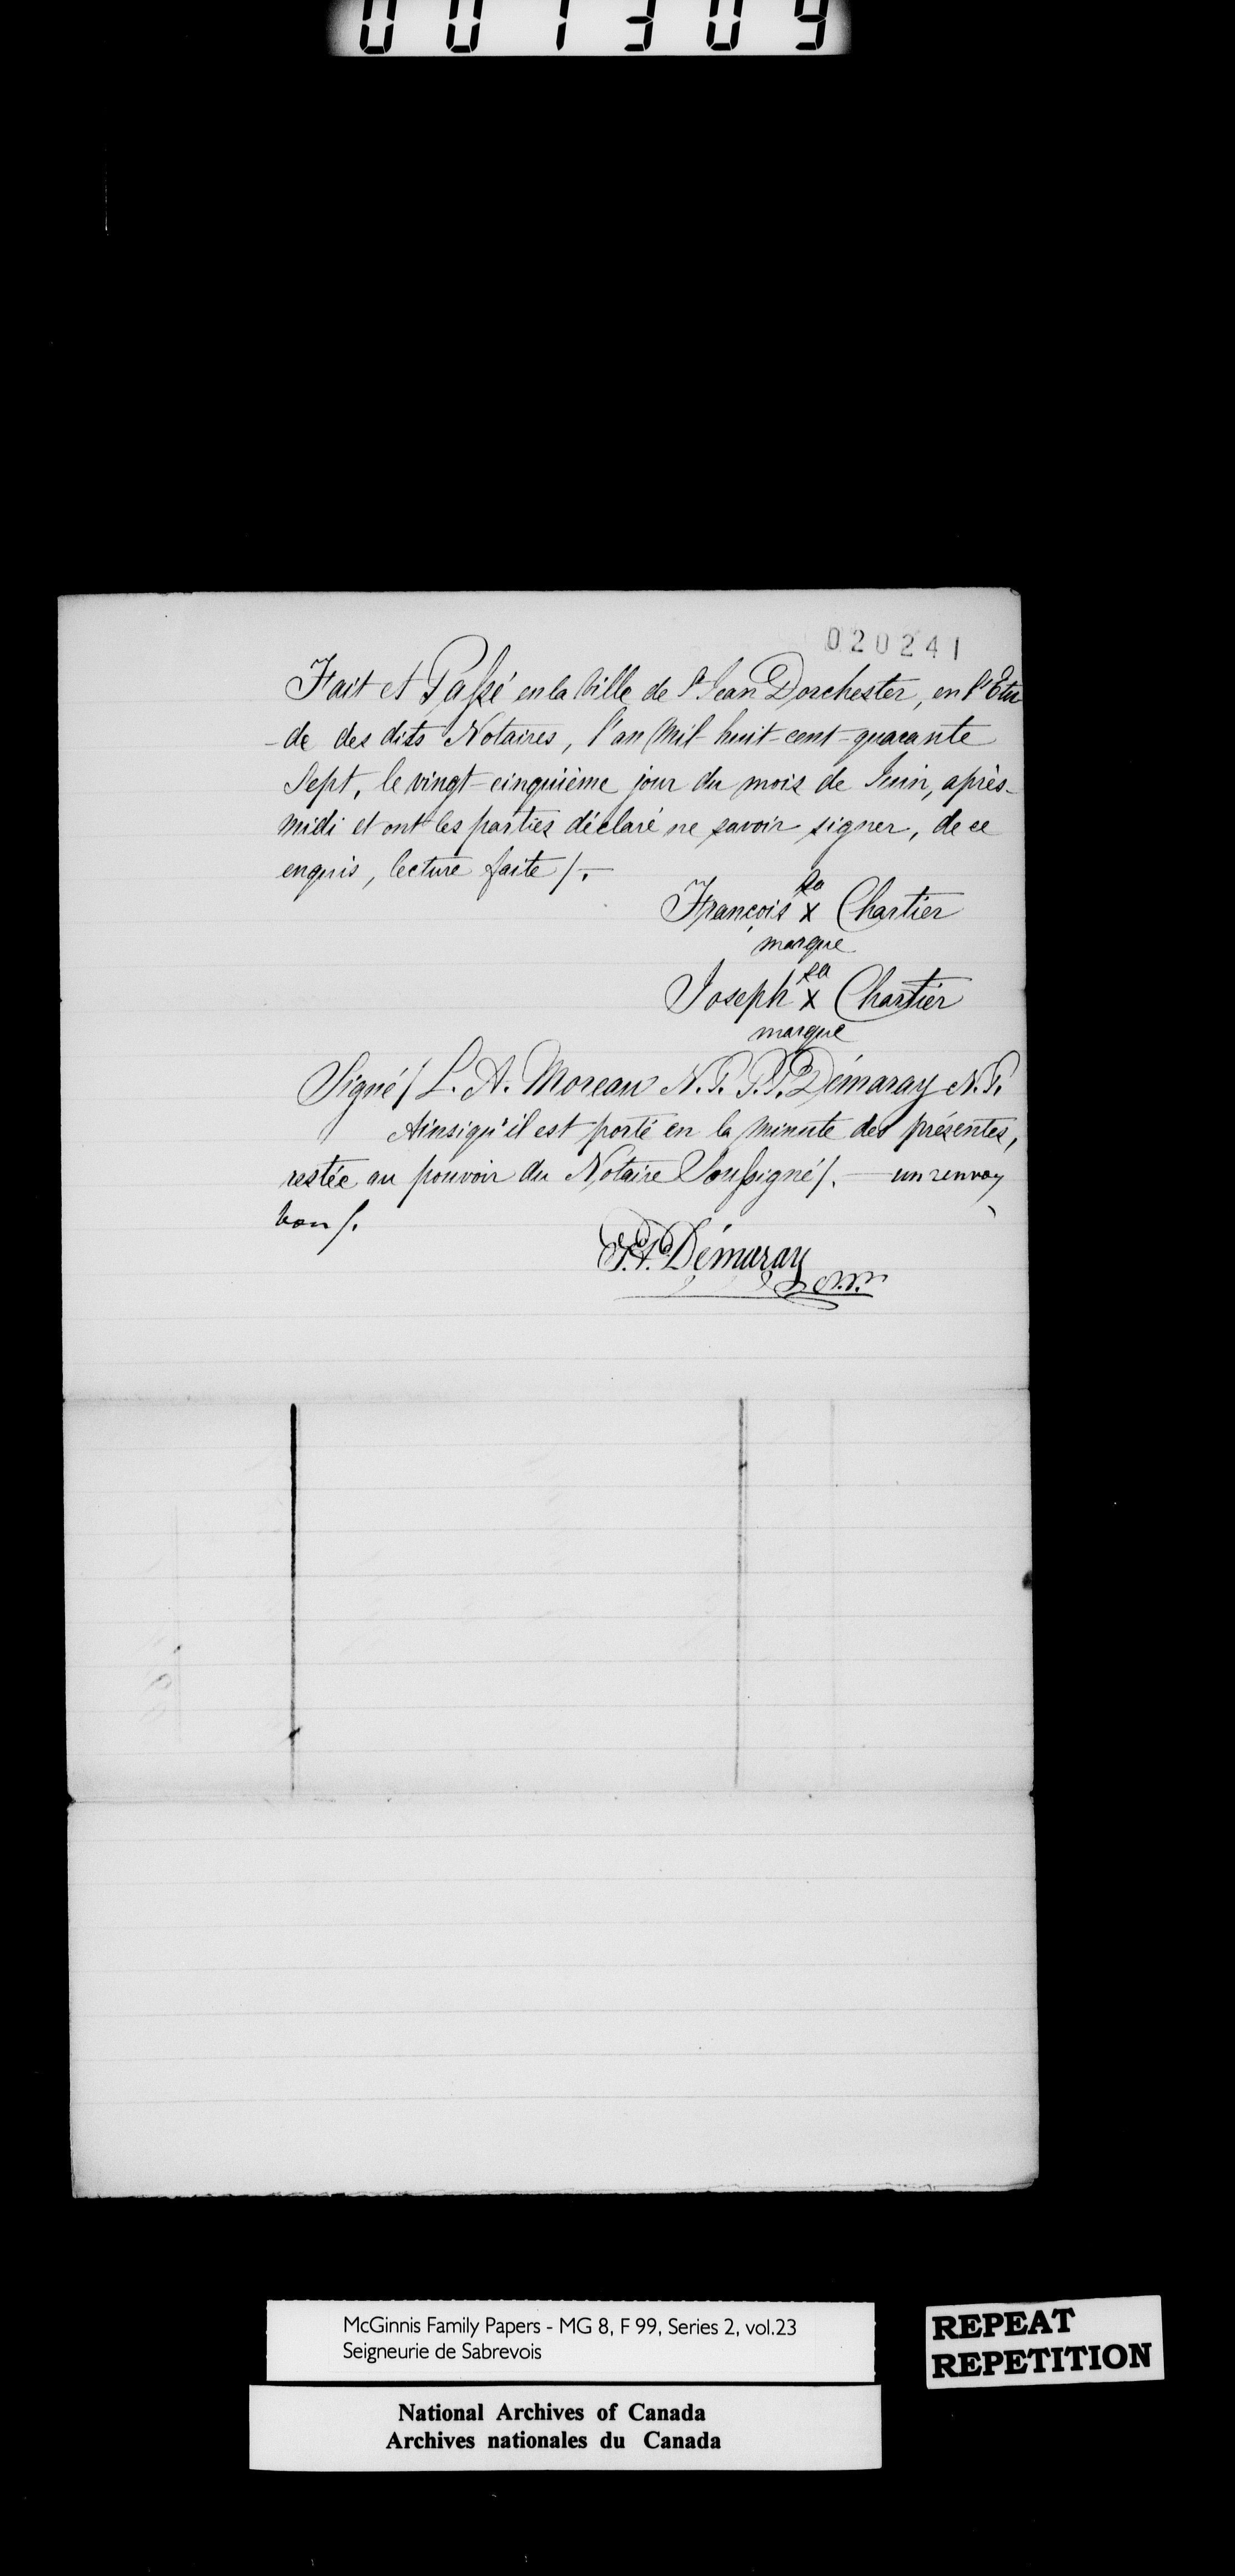 001309
020241
Fait et Passé en la Ville de St Jean Dorchester, en l'Etu
-de des dits Notaires, l'an Mil huit-cent-quarante
Sept, le vingt-cinquième jour du mois de Juin, après-
midi et ont les parties déclaré ne savoir signer, de ce
enquis, lecture faite /.-
sa
François x Chartier
marque
sa
Joseph x Chartier
marque
Signé / L. A. Moreau N. P. P. P. Démaray N. P.
Ainsi qu'il est porté en la minute des présentes,
restée au pouvoir du Notaire Soussigné /. — un renvoy
bon /.
P. P. Démaray
N.P.
McGinnis Family Papers - MG 8, F 99, Series 2, vol.23
Seigneurie de Sabrevois
REPEAT
REPETITION
National Archives of Canada
Archives nationales du Canada